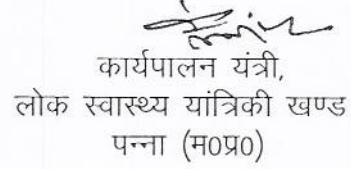 कार्यपालन यंत्री,
लोक स्वास्थ्य यांत्रिकी खण्ड
पन्ना (म0प्र0)